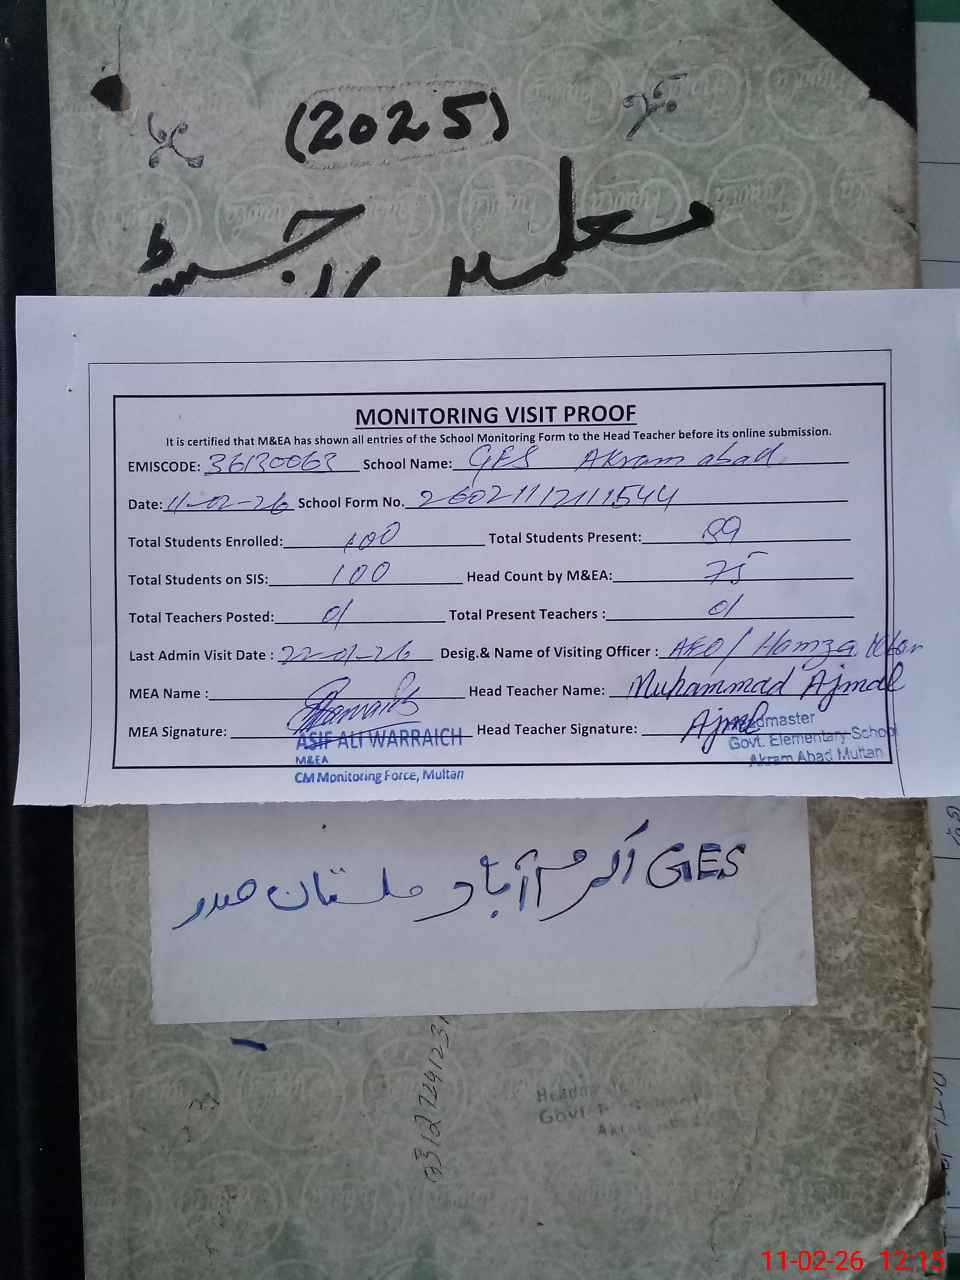 (2025)
معلمین رجسٹر
MONITORING VISIT PROOF
It is certified that M&EA has shown all entries of the School Monitoring Form to the Head Teacher before its online submission.
EMISCODE: 36130063 School Name: GES Akram abad
Date: 11-02-26 School Form No. 2602111211544
Total Students Enrolled: 100 Total Students Present: 89
Total Students on SIS: 100 Head Count by M&EA: 75
Total Teachers Posted: 01 Total Present Teachers : 01
Last Admin Visit Date : 22-01-26 Desig.& Name of Visiting Officer : AEO/ Hamza
MEA Name : Head Teacher Name: Muhammad Ajmal
MEA Signature: Head Teacher Signature: Ajmal
ASIF ALI WARRAICH
M&EA
CM Monitoring Force, Multan
Headmaster
Govt. Elementary School
Akram Abad Multan
GES اکرم آباد ملتان صدر
11-02-26 12:15